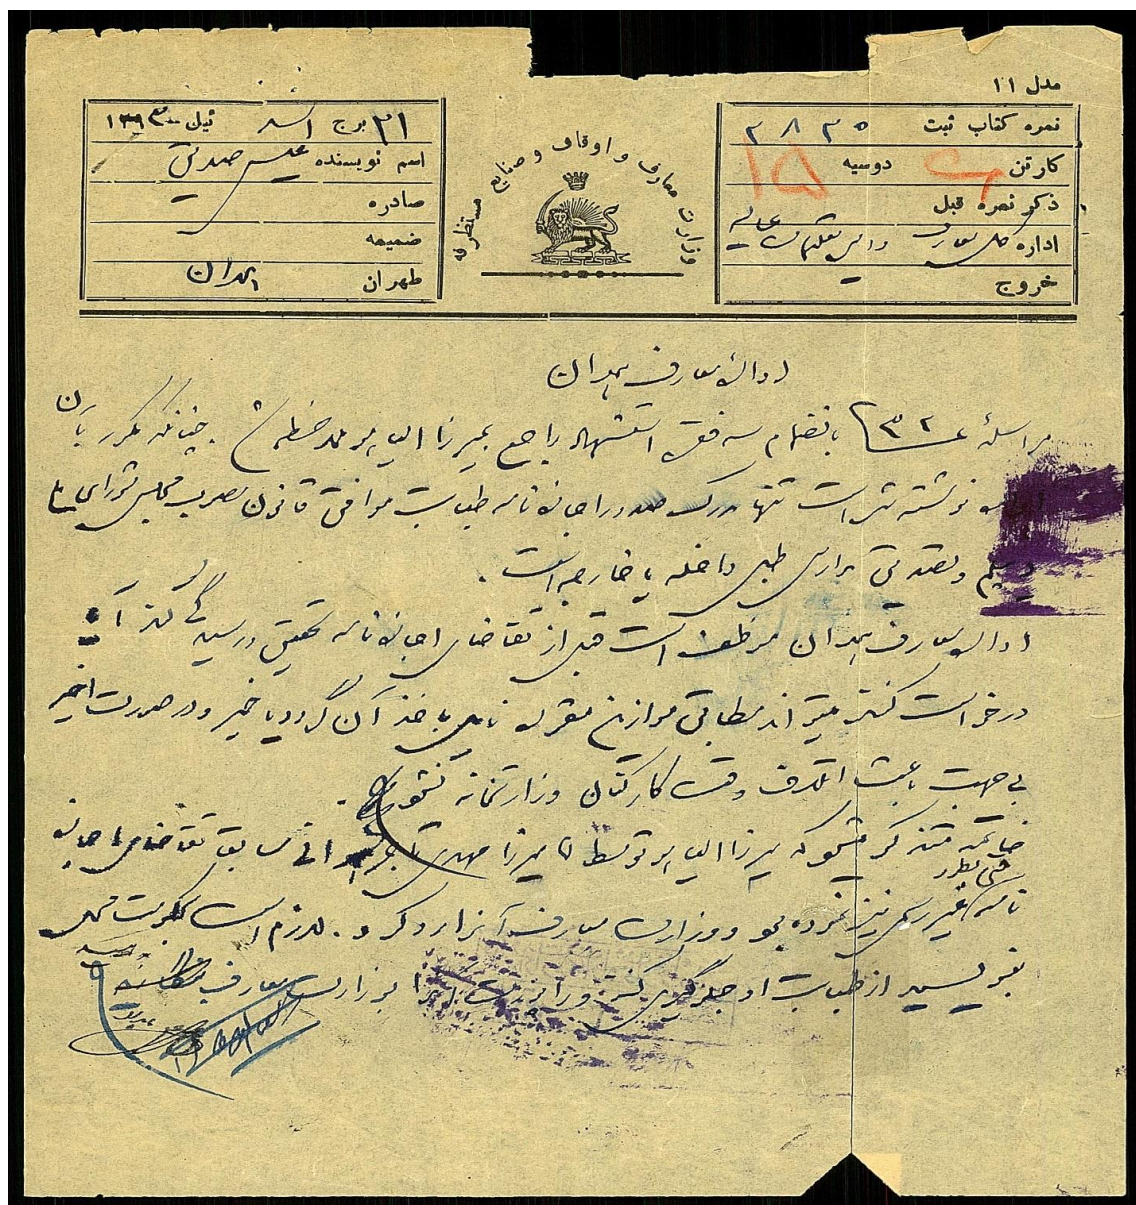 مدل ۱۱
نمره کتاب ثبت ۳۸۳۵
کارتن دوسیه ۱۵
ذکر نمره قبل
اداره کل معارف
خروج
وزارت معارف و اوقاف و صنایع مستظرفه
۲۱ برج اسد ئیل ۱۳۰۳
اسم نویسنده عیسی صدیق
صادره
ضمیمه
طهران همدان
اداره معارف همدان
مراسله ۳۲ بانضمام سه فقره استشهاد راجع بمیرزا الیاهو ملاحظه شد. چنانکه مکرر بآن
اداره نوشته شده است تنها مدرک صدور اجازه نامه طبابت موافق قانون مصوب مجلس شورای ملی
دیپلم و تصدیق مدارس طبی داخله یا خارجه است.
اداره معارف همدان موظف است قبل از تقاضای اجازه نامه تحقیق و رسیدگی کند آیا
درخواست کننده میتواند مطابق موازین مقرره نایل باخذ آن گردد یا خیر و در صورت اخیر
بی جهت باعث اتلاف وقت کارکنان وزارتخانه نشود.
خاتمة متذکر میشود که میرزا الیاهو توسط میرزا مهدی سابق تقاضای اجازه
نامه غیر رسمی نیز نموده بود و وزارت معارف آنرا رد کرد. لازم است بحکومت محلی
بنویسید از طبابت او جلوگیری کند و را بوزارت معارف